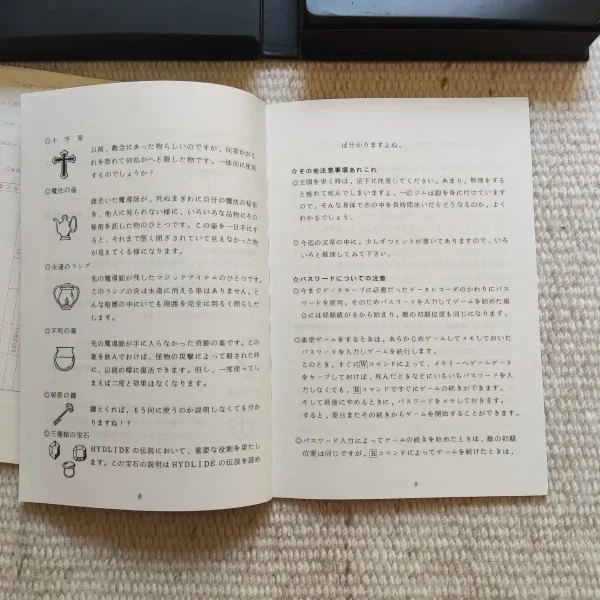 ◎十字架
以前、教会にあった物らしいのですが、何者かがこ
れを恐れて何処かへと隠した物です。一体何に使用
するのでしょうか?
◎魔法の壷
歳老いた魔導師が、死ぬまぎわに自分の魔法の秘密
を、他人に知られない様に、いろいろな品物にその
秘密を託した物のひとつです。この壷を一旦手にす
ると、それまで堅く閉ざされていて見えなかった物
が見えてくる様になります。
◎永遠のランプ
先の魔導師が残したマジックアイテムのひとつです。
このランプの炎は永遠に消える事はありません。ど
んな暗闇の中にいても周囲を完全に明るく照らしだ
します。
◎不死の薬
先の魔導師が手に入らなかった奇跡の薬です。この
薬を飲んでおけば、怪物の攻撃によって殺された時
に、以前の様に復活できます。但し、一度使ってし
まえば二度と効果はなくなります。
◎秘密の鍵
鍵とくれば、もう何に使うのか説明しなくても分か
りますね!?
◎三種類の宝石
HYDLIDEの伝説において、重要な役割を果たし
ます。この宝石の説明はHYDLIDEの伝説を読め
8
ば分かりますよね。
☆その他注意事項あれこれ
◎王国を歩く時は、足下に注意してください。あまり、無理をする
と疲れて死んでしまいますよ。一応ジムは鎧を身に付けています
ので、そんな身体で水の中を長時間泳いだらどうなるのか、よく
わかるでしょう。
◎今迄の文章の中に、少しずつヒントが書いてありますので、いろ
いろと推理してみて下さい。
☆パスワードについての注意
◎今までデータセーブに必要だったデータレコーダのかわりにパス
ワードを使用。そのためパスワードを入力してゲームを始めた場
合には経験値が0から始まり、敵の初期位置も同じになります。
◎通常ゲームをするときは、あらかじめゲームしてメモしておいた
パスワードを入力しゲームを続行します。
このとき、すぐにWコマンドによって、メモリーへゲームデータ
をセーブしておけば、死んだときなどにいちいちパスワードを入
力しなくても、Rコマンドですぐにゲームの続きができます。
そして最後にやめるときに、パスワードをメモしておきます。
すると、翌日またその続きからゲームを開始することができます。
◎パスワード入力によってゲームの続きを始めたときは、敵の初期
位置は同じですが、Rコマンドによってゲームを続けたときは、
9